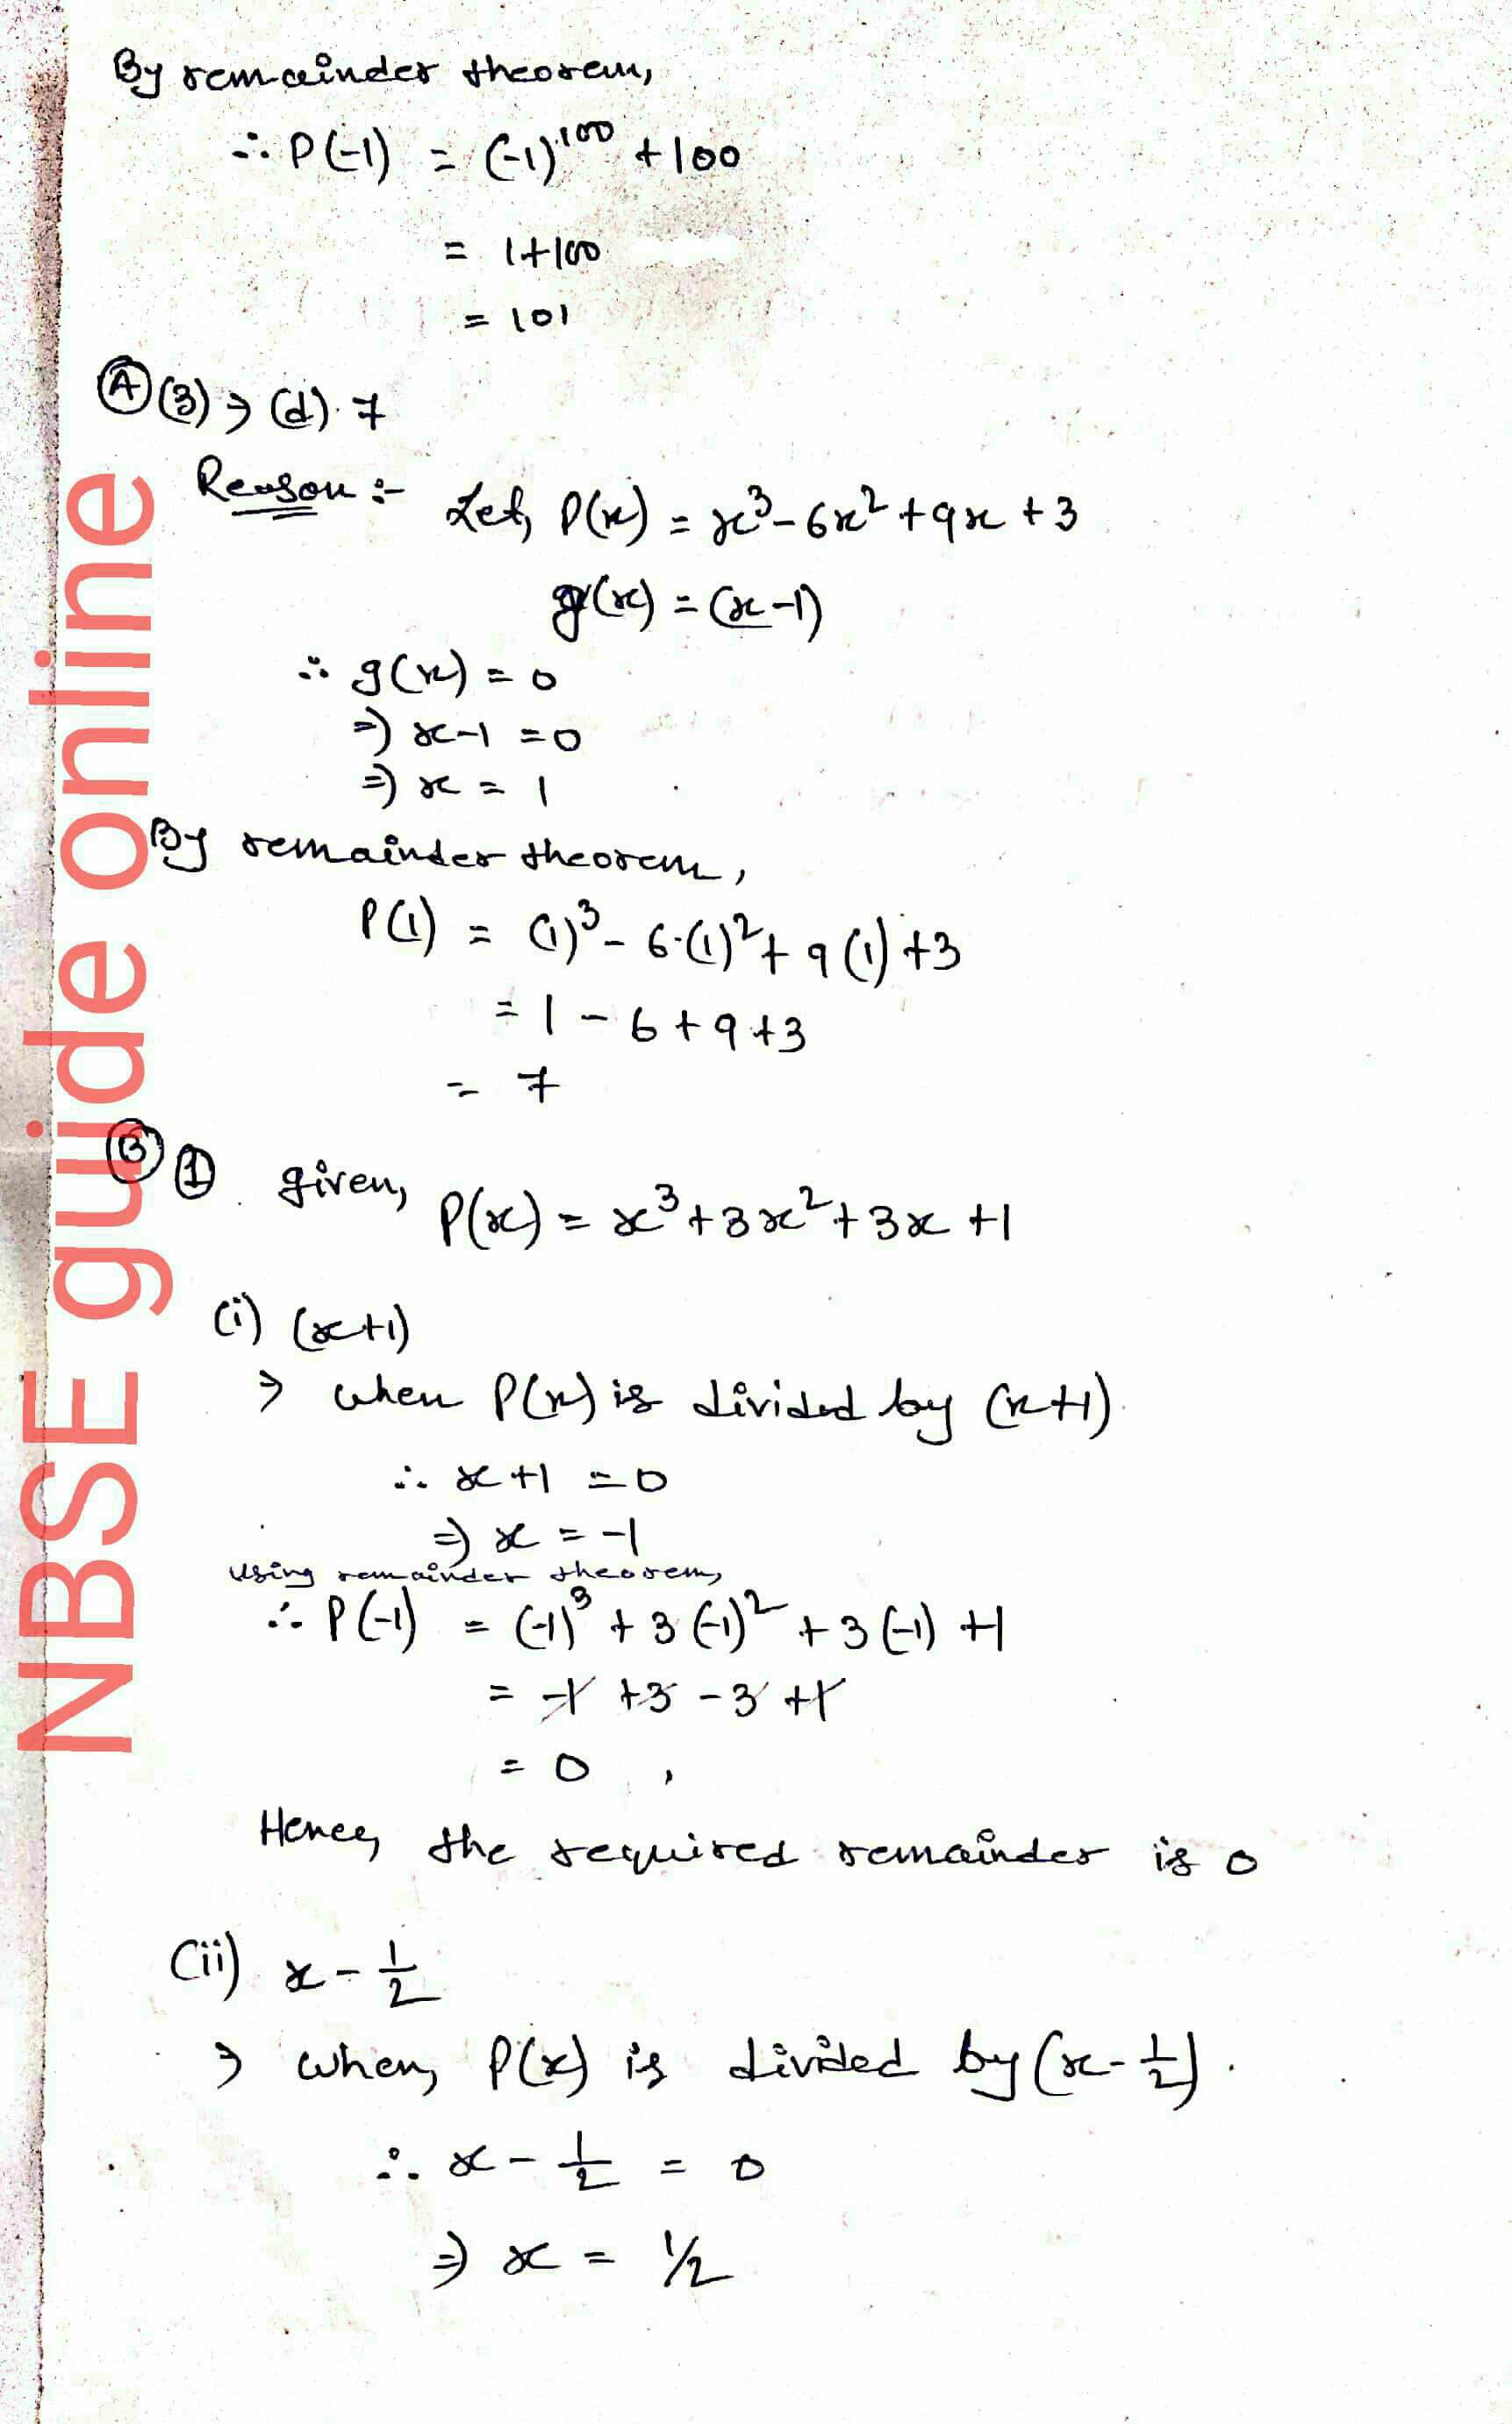 By remainder theorem,
∴ P(-1) = (-1)¹⁰⁰ + 100
= 1+100
= 101
Ⓐ (3) → (d). 7
Reason :- Let, P(x) = x³ - 6x² + 9x + 3
g(x) = (x-1)
∴ g(x) = 0
⇒ x-1 = 0
⇒ x = 1
By remainder theorem,
P(1) = (1)³ - 6·(1)² + 9(1) + 3
= 1 - 6 + 9 + 3
= 7
Ⓑ ① given, P(x) = x³ + 3x² + 3x + 1
(i) (x+1)
→ when P(x) is divided by (x+1).
∴ x+1 = 0
⇒ x = -1
using remainder theorem,
∴ P(-1) = (-1)³ + 3(-1)² + 3(-1) + 1
= -1 + 3 - 3 + 1
= 0,
Hence, the required remainder is 0
(ii) x - 1/2
→ when, P(x) is divided by (x - 1/2).
∴ x - 1/2 = 0
⇒ x = 1/2
NBSE guide online